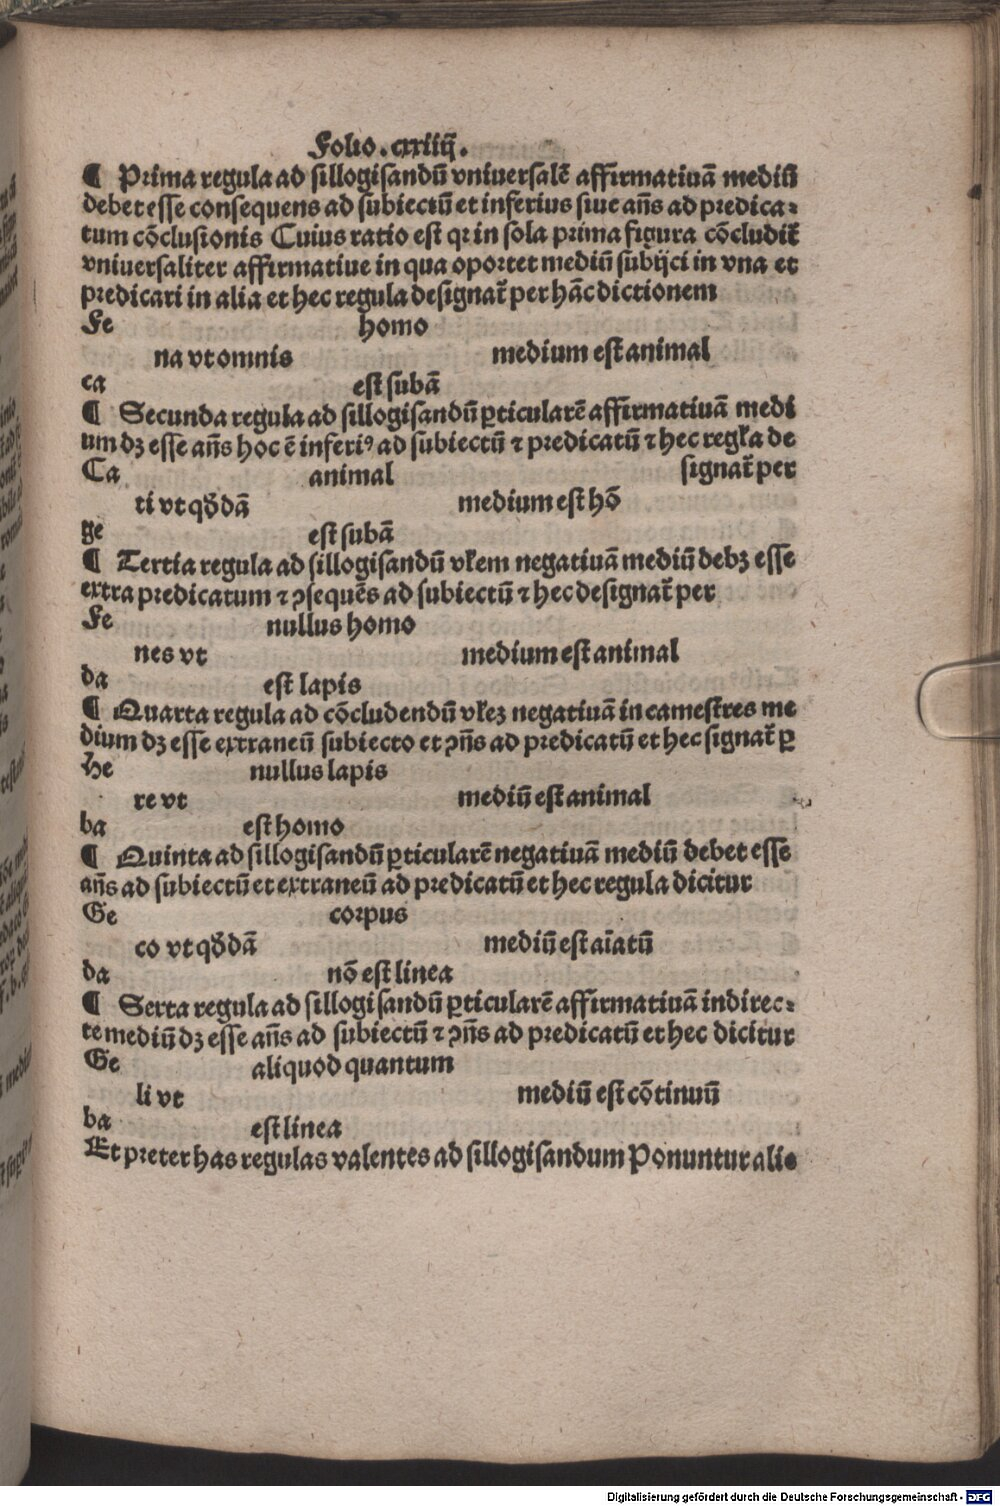 Folio. cxxiiij.
¶ Prima regula ad sillogisandū vniuersalē affirmatiuā mediū
debet esse consequens ad subiectū et inferius siue añs ad predica⸗
tum cōclusionis Cuius ratio est qꝛ in sola prima figura cōcludit᷑
vniuersaliter affirmatiue in qua oportet mediū subijci in vna et
predicari in alia et hec regula designat᷑ per hāc dictionem
Fe homo
na vt omnis medium est animal
ca est subā
¶ Secunda regula ad sillogisandū ꝑticularē affirmatiuā medi
um dꝫ esse añs hoc ē inferiꝰ ad subiectū ⁊ predicatū ⁊ hec regl̃a de
Ca animal signat᷑ per
ti vt qd̄dā medium est hō
ge est subā
¶ Tertia regula ad sillogisandū vl̃em negatiuā mediū debꝫ esse
extra predicatum ⁊ ꝯsequēs ad subiectū ⁊ hec designat᷑ per
Fe nullus homo
nes vt medium est animal
da est lapis
¶ Quarta regula ad cōcludendū vl̃eꝫ negatiuā in camestres me
dium dꝫ esse extraneū subiecto et ꝯñs ad predicatū et hec signat᷑ ꝑ
He nullus lapis
re vt mediū est animal
ba est homo
¶ Quinta ad sillogisandū ꝑticularē negatiuā mediū debet esse
añs ad subiectū et extraneū ad predicatū et hec regula dicitur
Ge corpus
co vt qd̄dā mediū est aīatū
da nō est linea
¶ Sexta regula ad sillogisandū ꝑticularē affirmatiuā indirec⸗
te mediū dꝫ esse añs ad subiectū ⁊ ꝯñs ad predicatū et hec dicitur
Ge aliquod quantum
li vt mediū est cōtinuū
ba est linea
Et preter has regulas valentes ad sillogisandum Ponuntur ali⸗
Digitalisierung gefördert durch die Deutsche Forschungsgemeinschaft - DFG